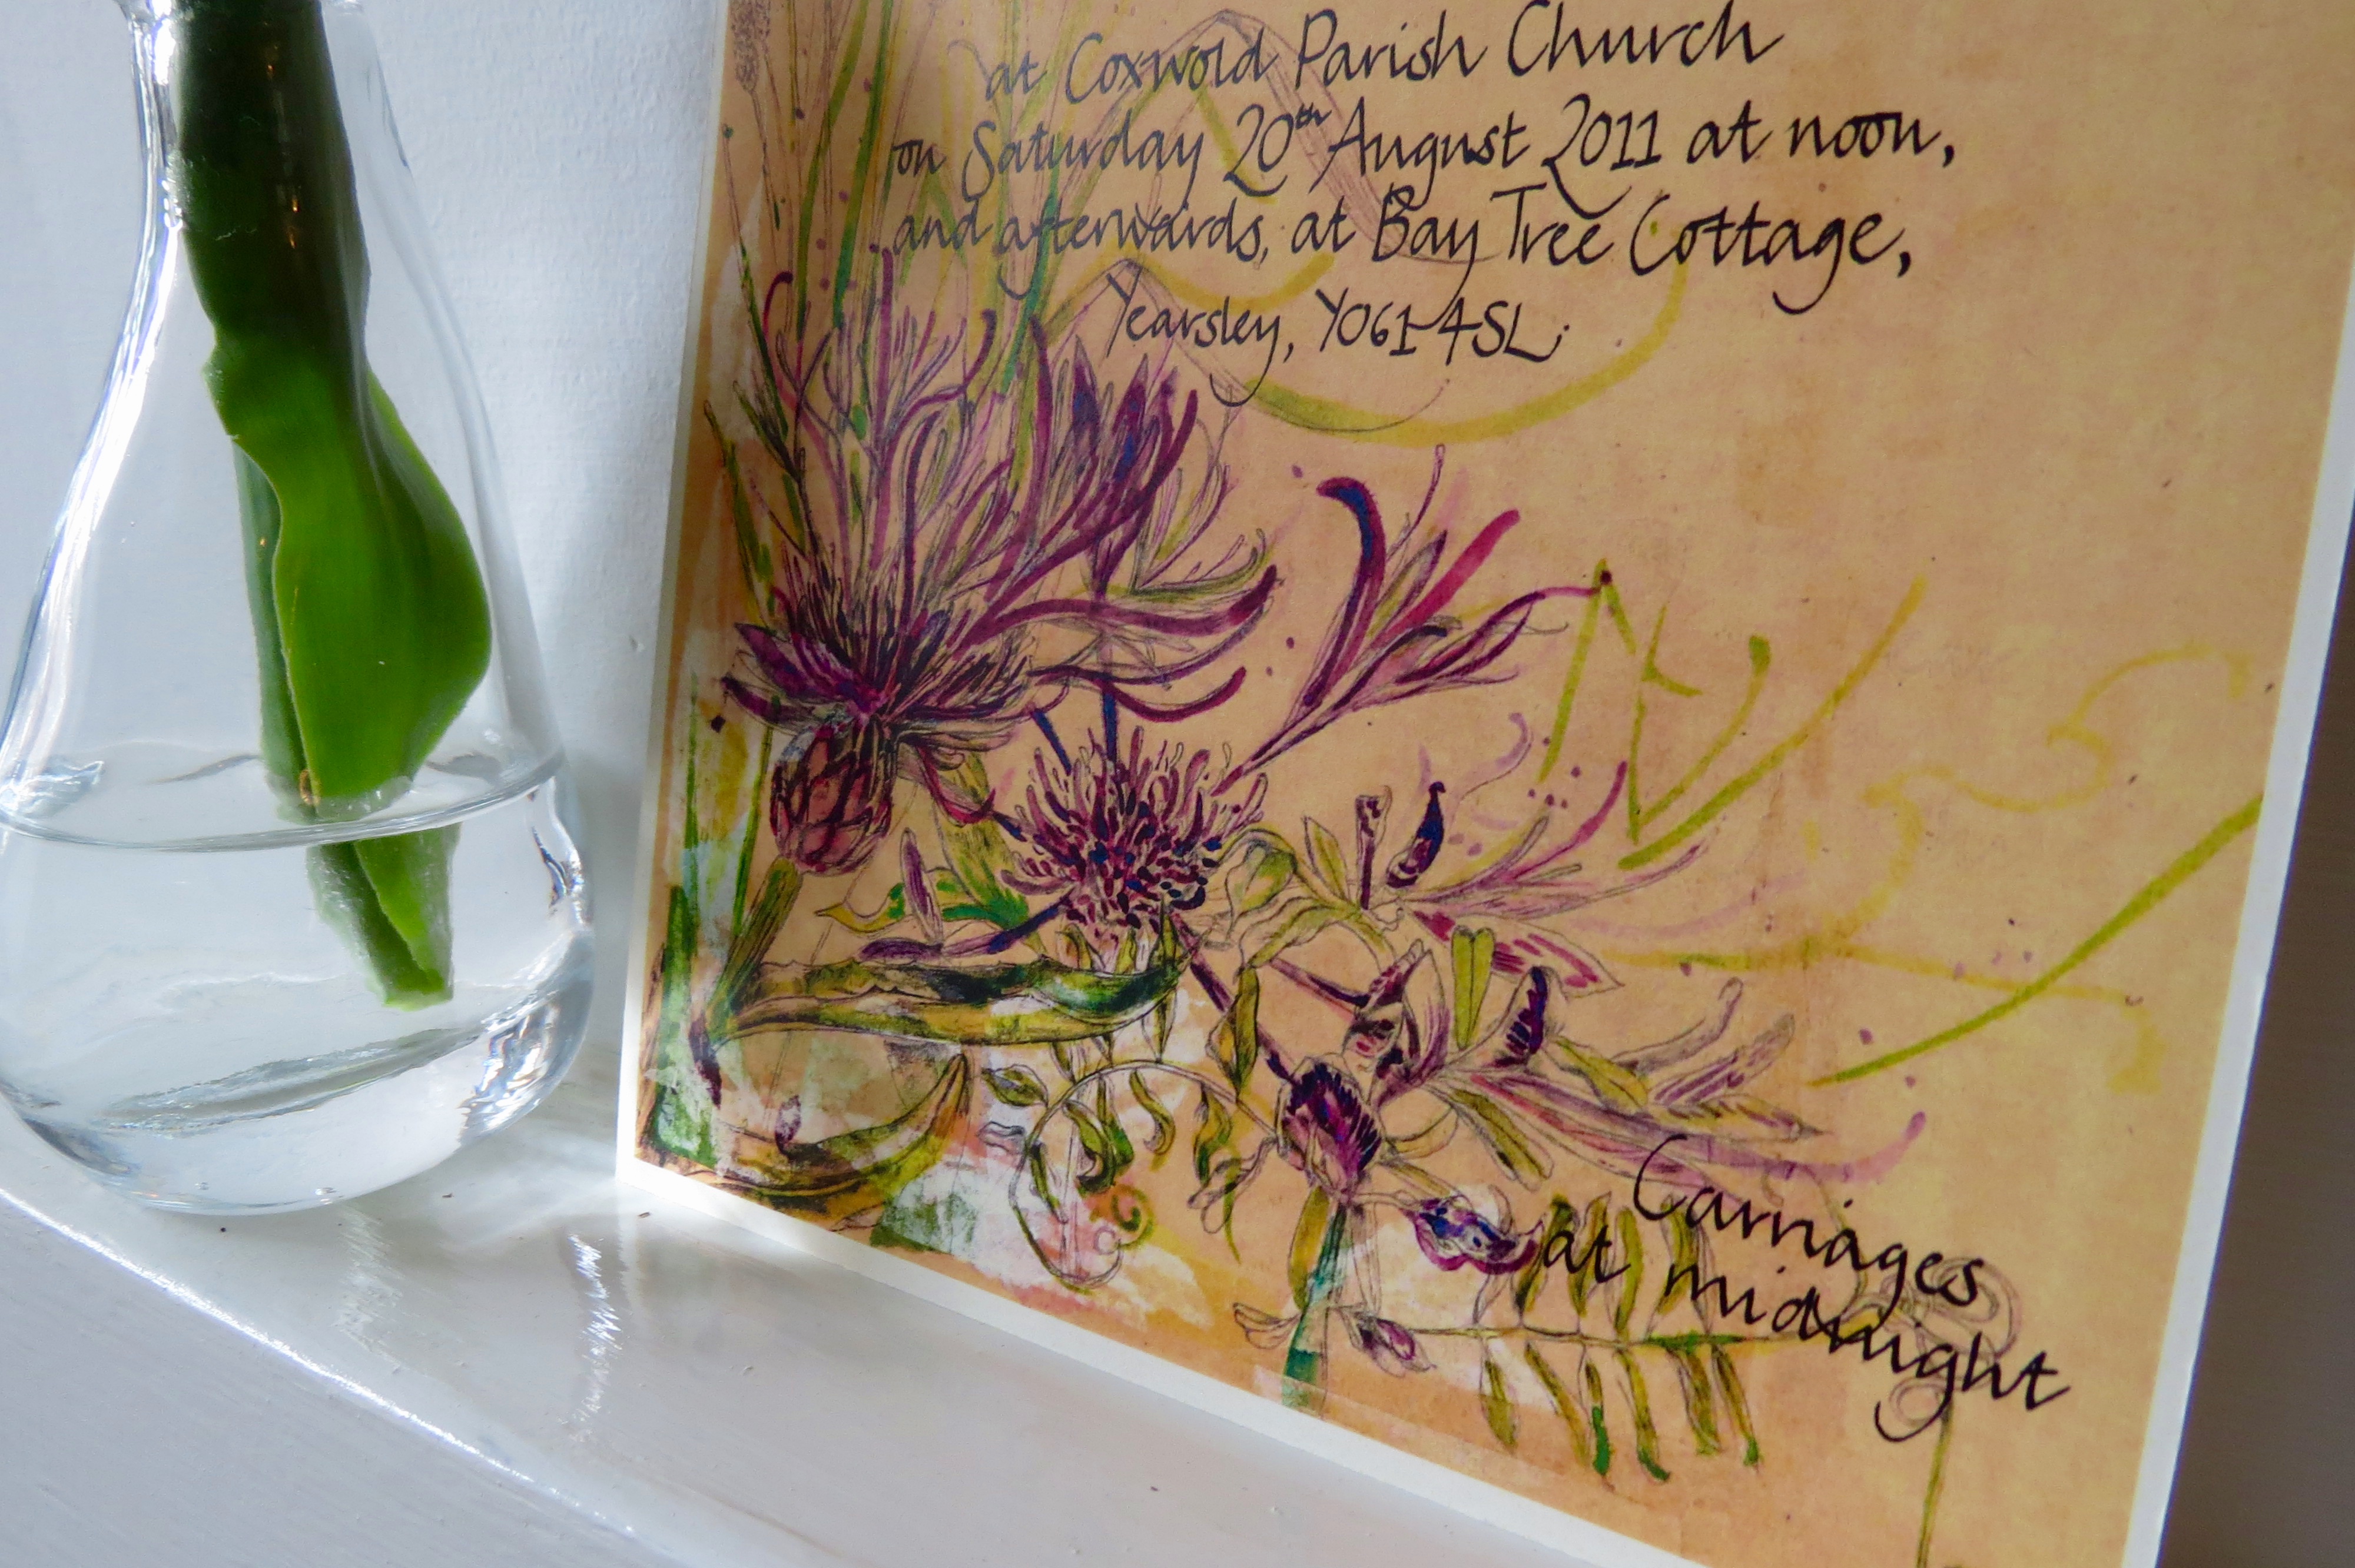 at Coxwold Parish Church
on Saturday 20th August 2011 at noon,
and afterwards, at Bay Tree Cottage,
Yearsley, YO61 4SL.
Carriages
at midnight